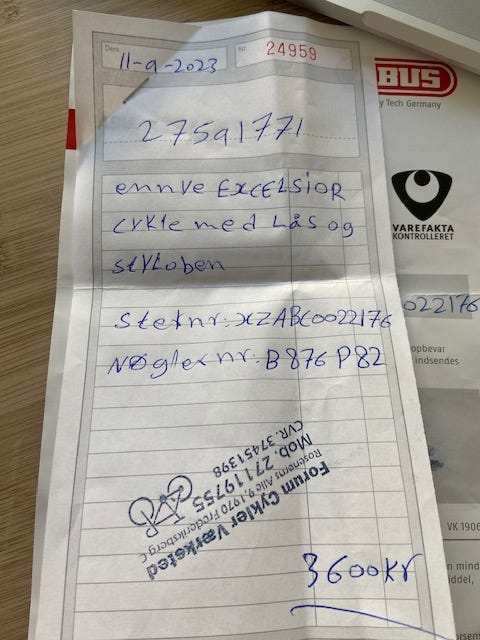 Den
11-9-2023
Nr.
24959
27591771
ennye EXCELSIOR
cykle med Lås og
styloben
Stelnr: XZABC0022176
Nøgler nr: B876 P82
Forum Cykler Værksted
Rosenørns Alle 9, 1970 Frederiksberg C
Mob. 27119755
CVR. 37451398
3600kr
BUS
y Tech Germany
VAREFAKTA
KONTROLLERET
0022176
opbevar
indsendes
VK 1906
n mind
iddel,